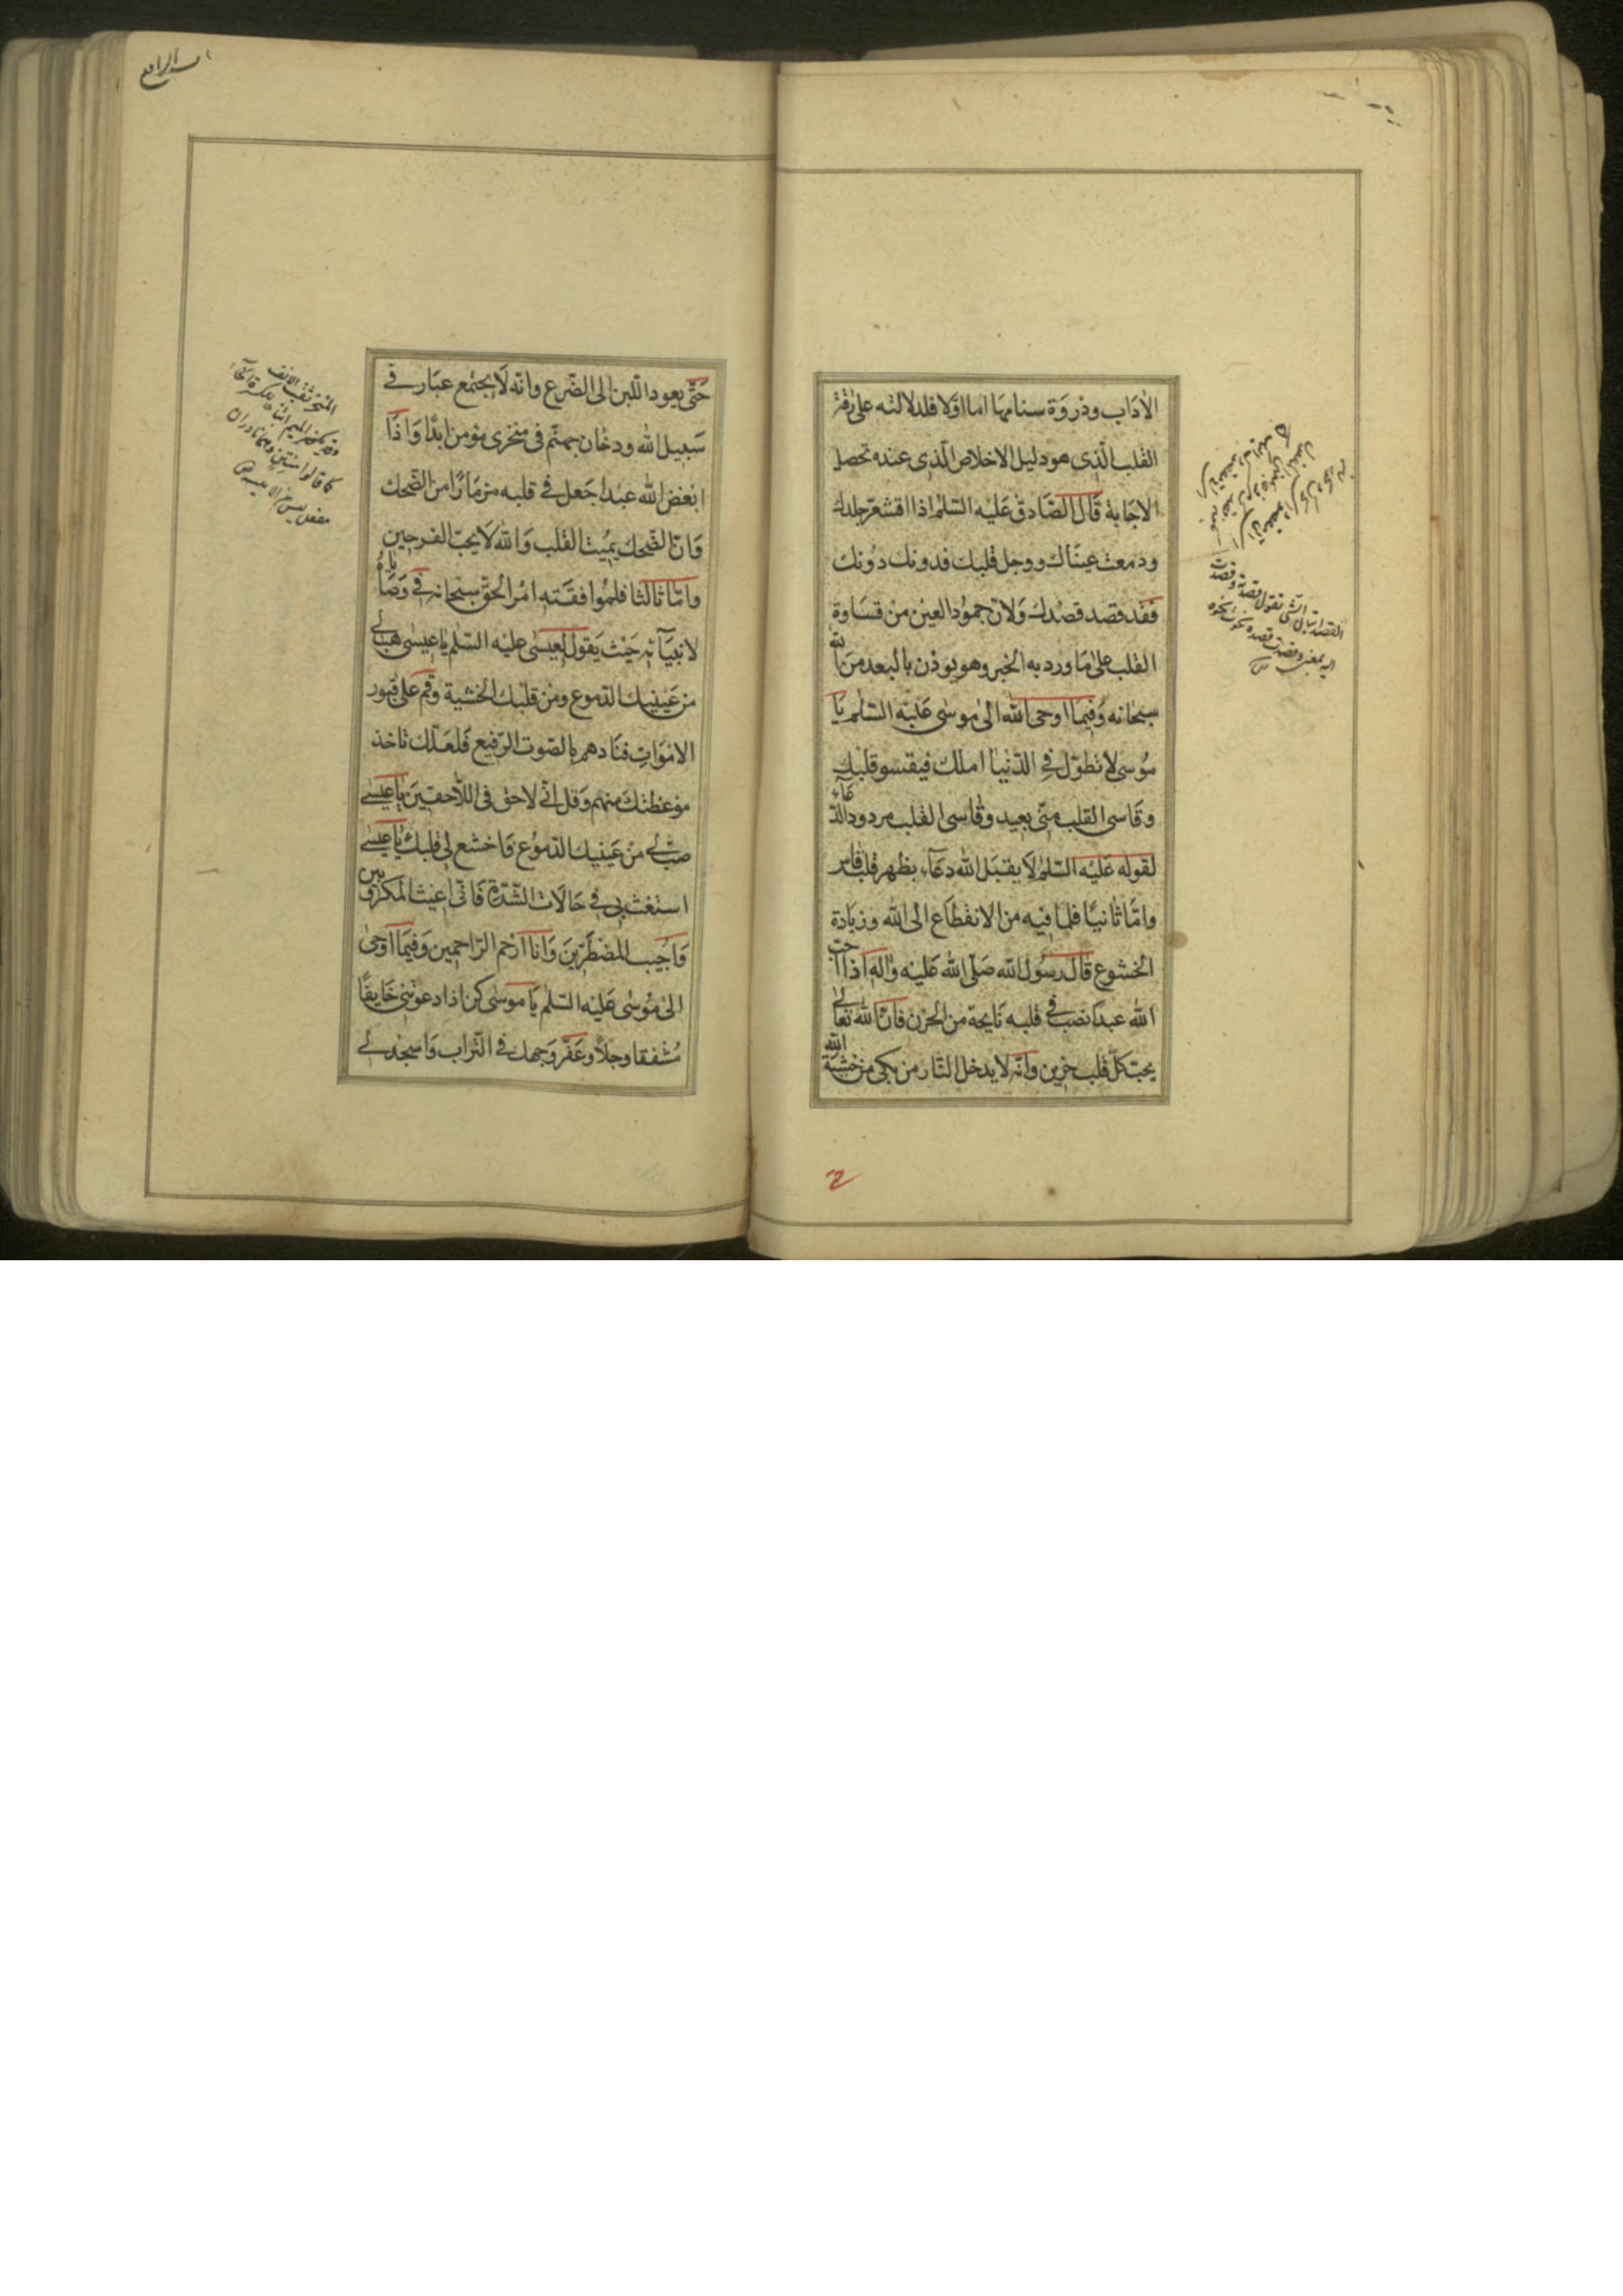 الآداب وذروة سنامها اما اوّلا فلدلالته على رقّة
القلب الّذى هو دليل الاخلاص الّذى عنده تحصل
الاجابة قال الصّادق عليه السّلم اذا اقشعرّ جلدك
ودمعت عيناك ووجل قلبك فدونك دونك
فقد قصد قصدك ولانّ جمود العين من قساوة
القلب على ما ورد به الخبر وهو يوذن بالبعد من الله
سبحانه وفيما اوحى الله الى موسى عليه السّلم يا
موسى لا تطوّل فى الدّنيا املك فيقسو قلبك
وقاسى القلب منّى بعيد وقاسى القلب مردود الدّعاء
لقوله عليه السّلم لا يقبل الله دعاء بظهر قلب قاس
وامّا ثانيًا فلما فيه من الانقطاع الى الله وزيادة
الخشوع قال رسول الله صلّى الله عليه وآله اذا احبّ
الله عبدًا نصب فى قلبه نايحة من الحزن فانّ الله تعالى
يحبّ كلّ قلب حزين وانّه لا يدخل النّار من بكى من خشية الله
حتّى يعود اللّبن الى الضّرع وانّه لا يجتمع غبار فى
سبيل الله ودخان جهنّم فى منخرى مؤمن ابدًا واذا
ابغض الله عبدا جعل فى قلبه مزمارًا من الضّحك
وانّ الضّحك يميت القلب والله لا يحبّ الفرحين
وامّا ثالثا فلموافقته امر الحقّ سبحانه فى وصاياه
لانبيآئه حيث يقول لعيسى عليه السّلم يا عيسى هب لى
من عينيك الدّموع ومن قلبك الخشية وقم على قبور
الاموات فنادهم بالصّوت الرّفيع فلعلّك تاخذ
موعظتك منهم وقل انّى لاحق فى اللّاحقين يا عيسى
صبّ لى من عينيك الدّموع واخشع لى قلبك يا عيسى
استغث بى فى حالات الشّدّة فانّى اغيث المكروبين
واجيب المضطرّين وانا ارحم الرّاحمين وفيما اوحى
الى موسى عليه السّلم يا موسى كن اذا دعوتنى خايفًا
مشفقا وجلًا وعفّر وجهك فى التّراب واسجد لى